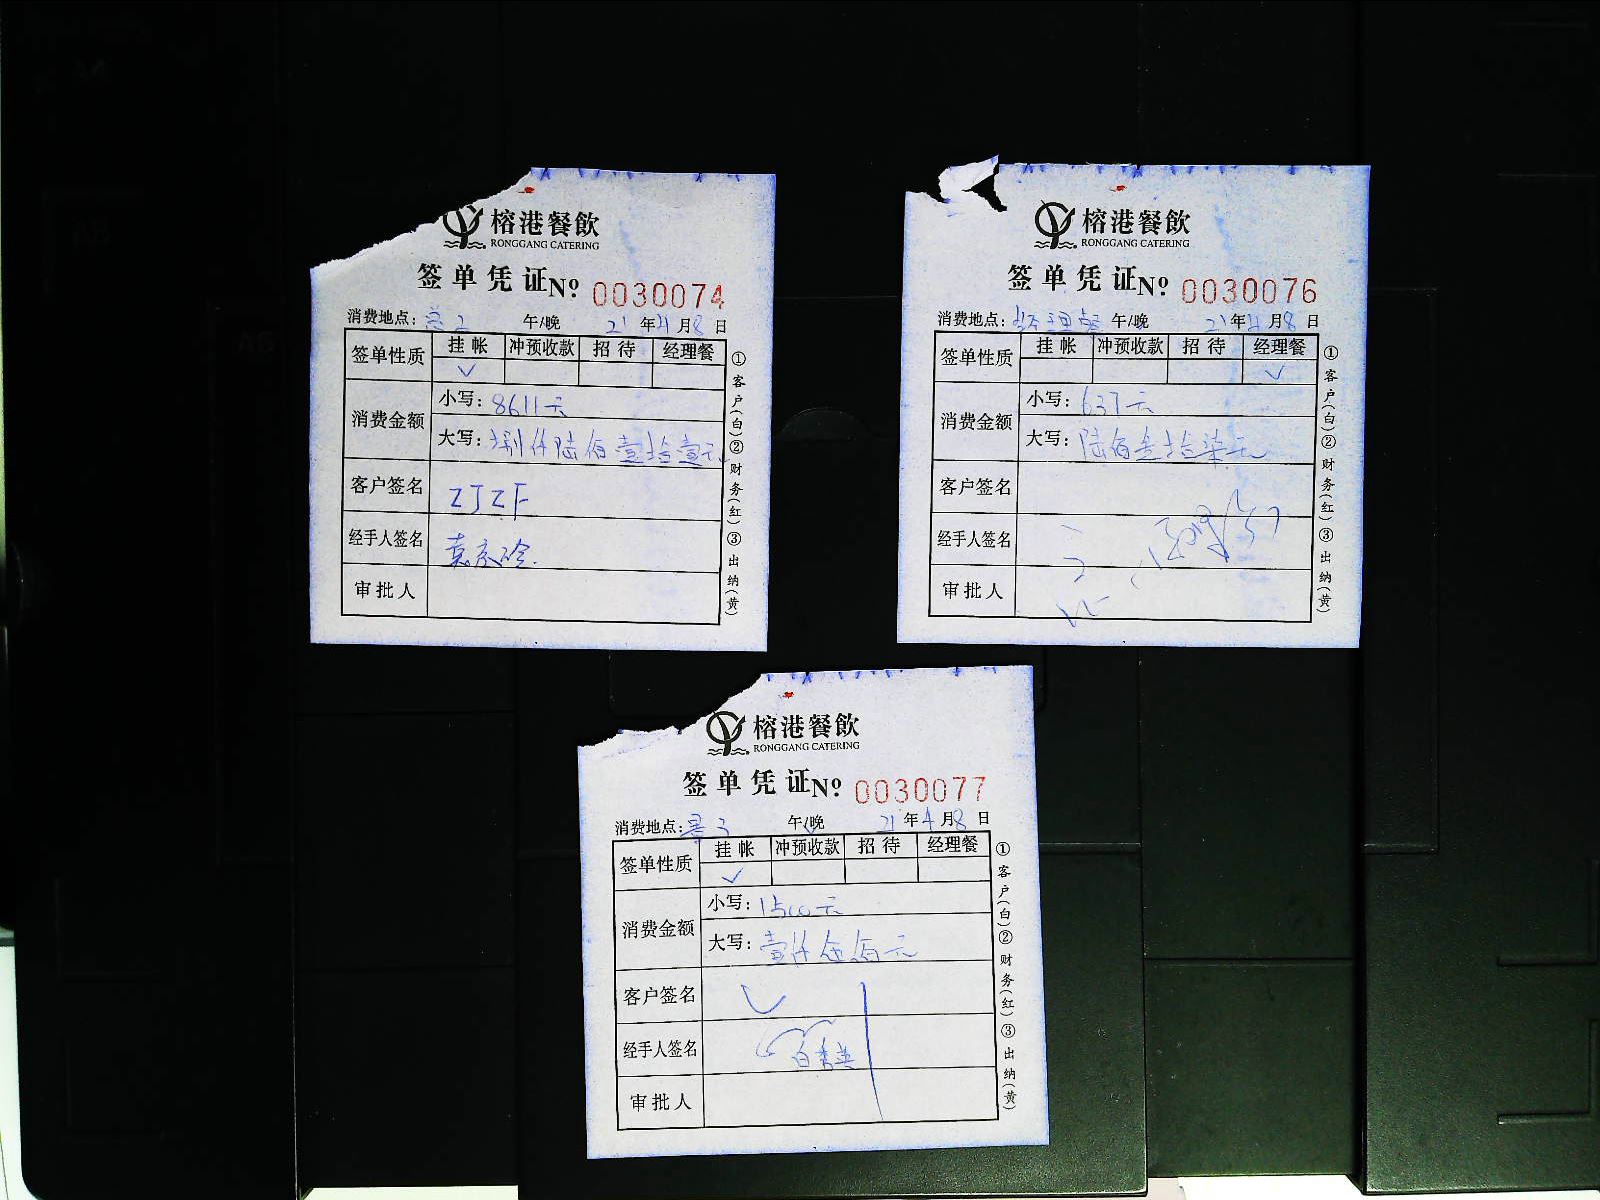 榕港餐飲
RONGGANG CATERING
签单凭证 Nº 0030074
消费地点: 午/晚 21年4月8日
签单性质 挂帐 冲预收款 招待 经理餐
✓
消费金额 小写: 8611元
大写: 捌仟陆佰壹拾壹元
客户签名 ZJZF
经手人签名
审批人
①客户(白)②财务(红)③出纳(黄)
榕港餐飲
RONGGANG CATERING
签单凭证 Nº 0030076
消费地点: 经理餐 午/晚 21年4月8日
签单性质 挂帐 冲预收款 招待 经理餐
✓
消费金额 小写: 637元
大写: 陆佰叁拾柒元
客户签名
经手人签名
审批人
①客户(白)②财务(红)③出纳(黄)
榕港餐飲
RONGGANG CATERING
签单凭证 Nº 0030077
消费地点: 午/晚 21年4月8日
签单性质 挂帐 冲预收款 招待 经理餐
✓
消费金额 小写: 1500元
大写: 壹仟伍佰元
客户签名
经手人签名
审批人
①客户(白)②财务(红)③出纳(黄)